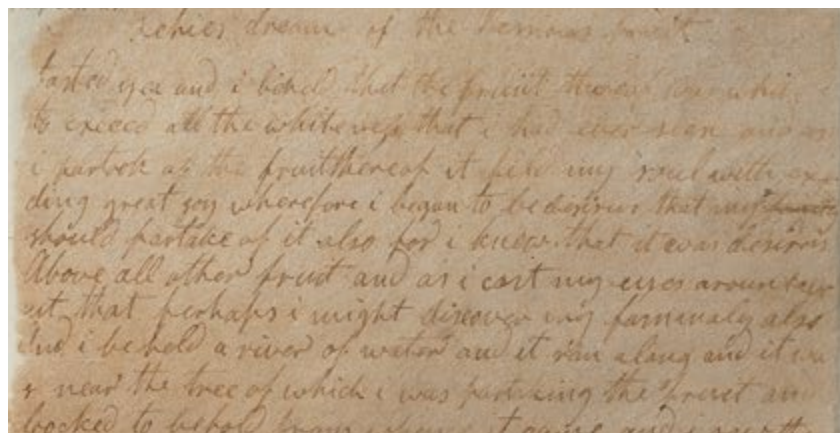 dream of the
tasted yea and i beheld that the fruiit thereof was whit
to exceed all the whiteness that i had ever seen and as
i partook of the fruit thereof it fild my soul with exe
ding great joy wherefore i began to be desirus that my
should partake of it also for i knew that it was desirus
Above all other fruit and as i cast my eyes around
ut that perhaps i might discover my also
And i beheld a river of water and it ran along and it wa
s near the tree of which i was partaking the fruit and
looked to behold from came and i